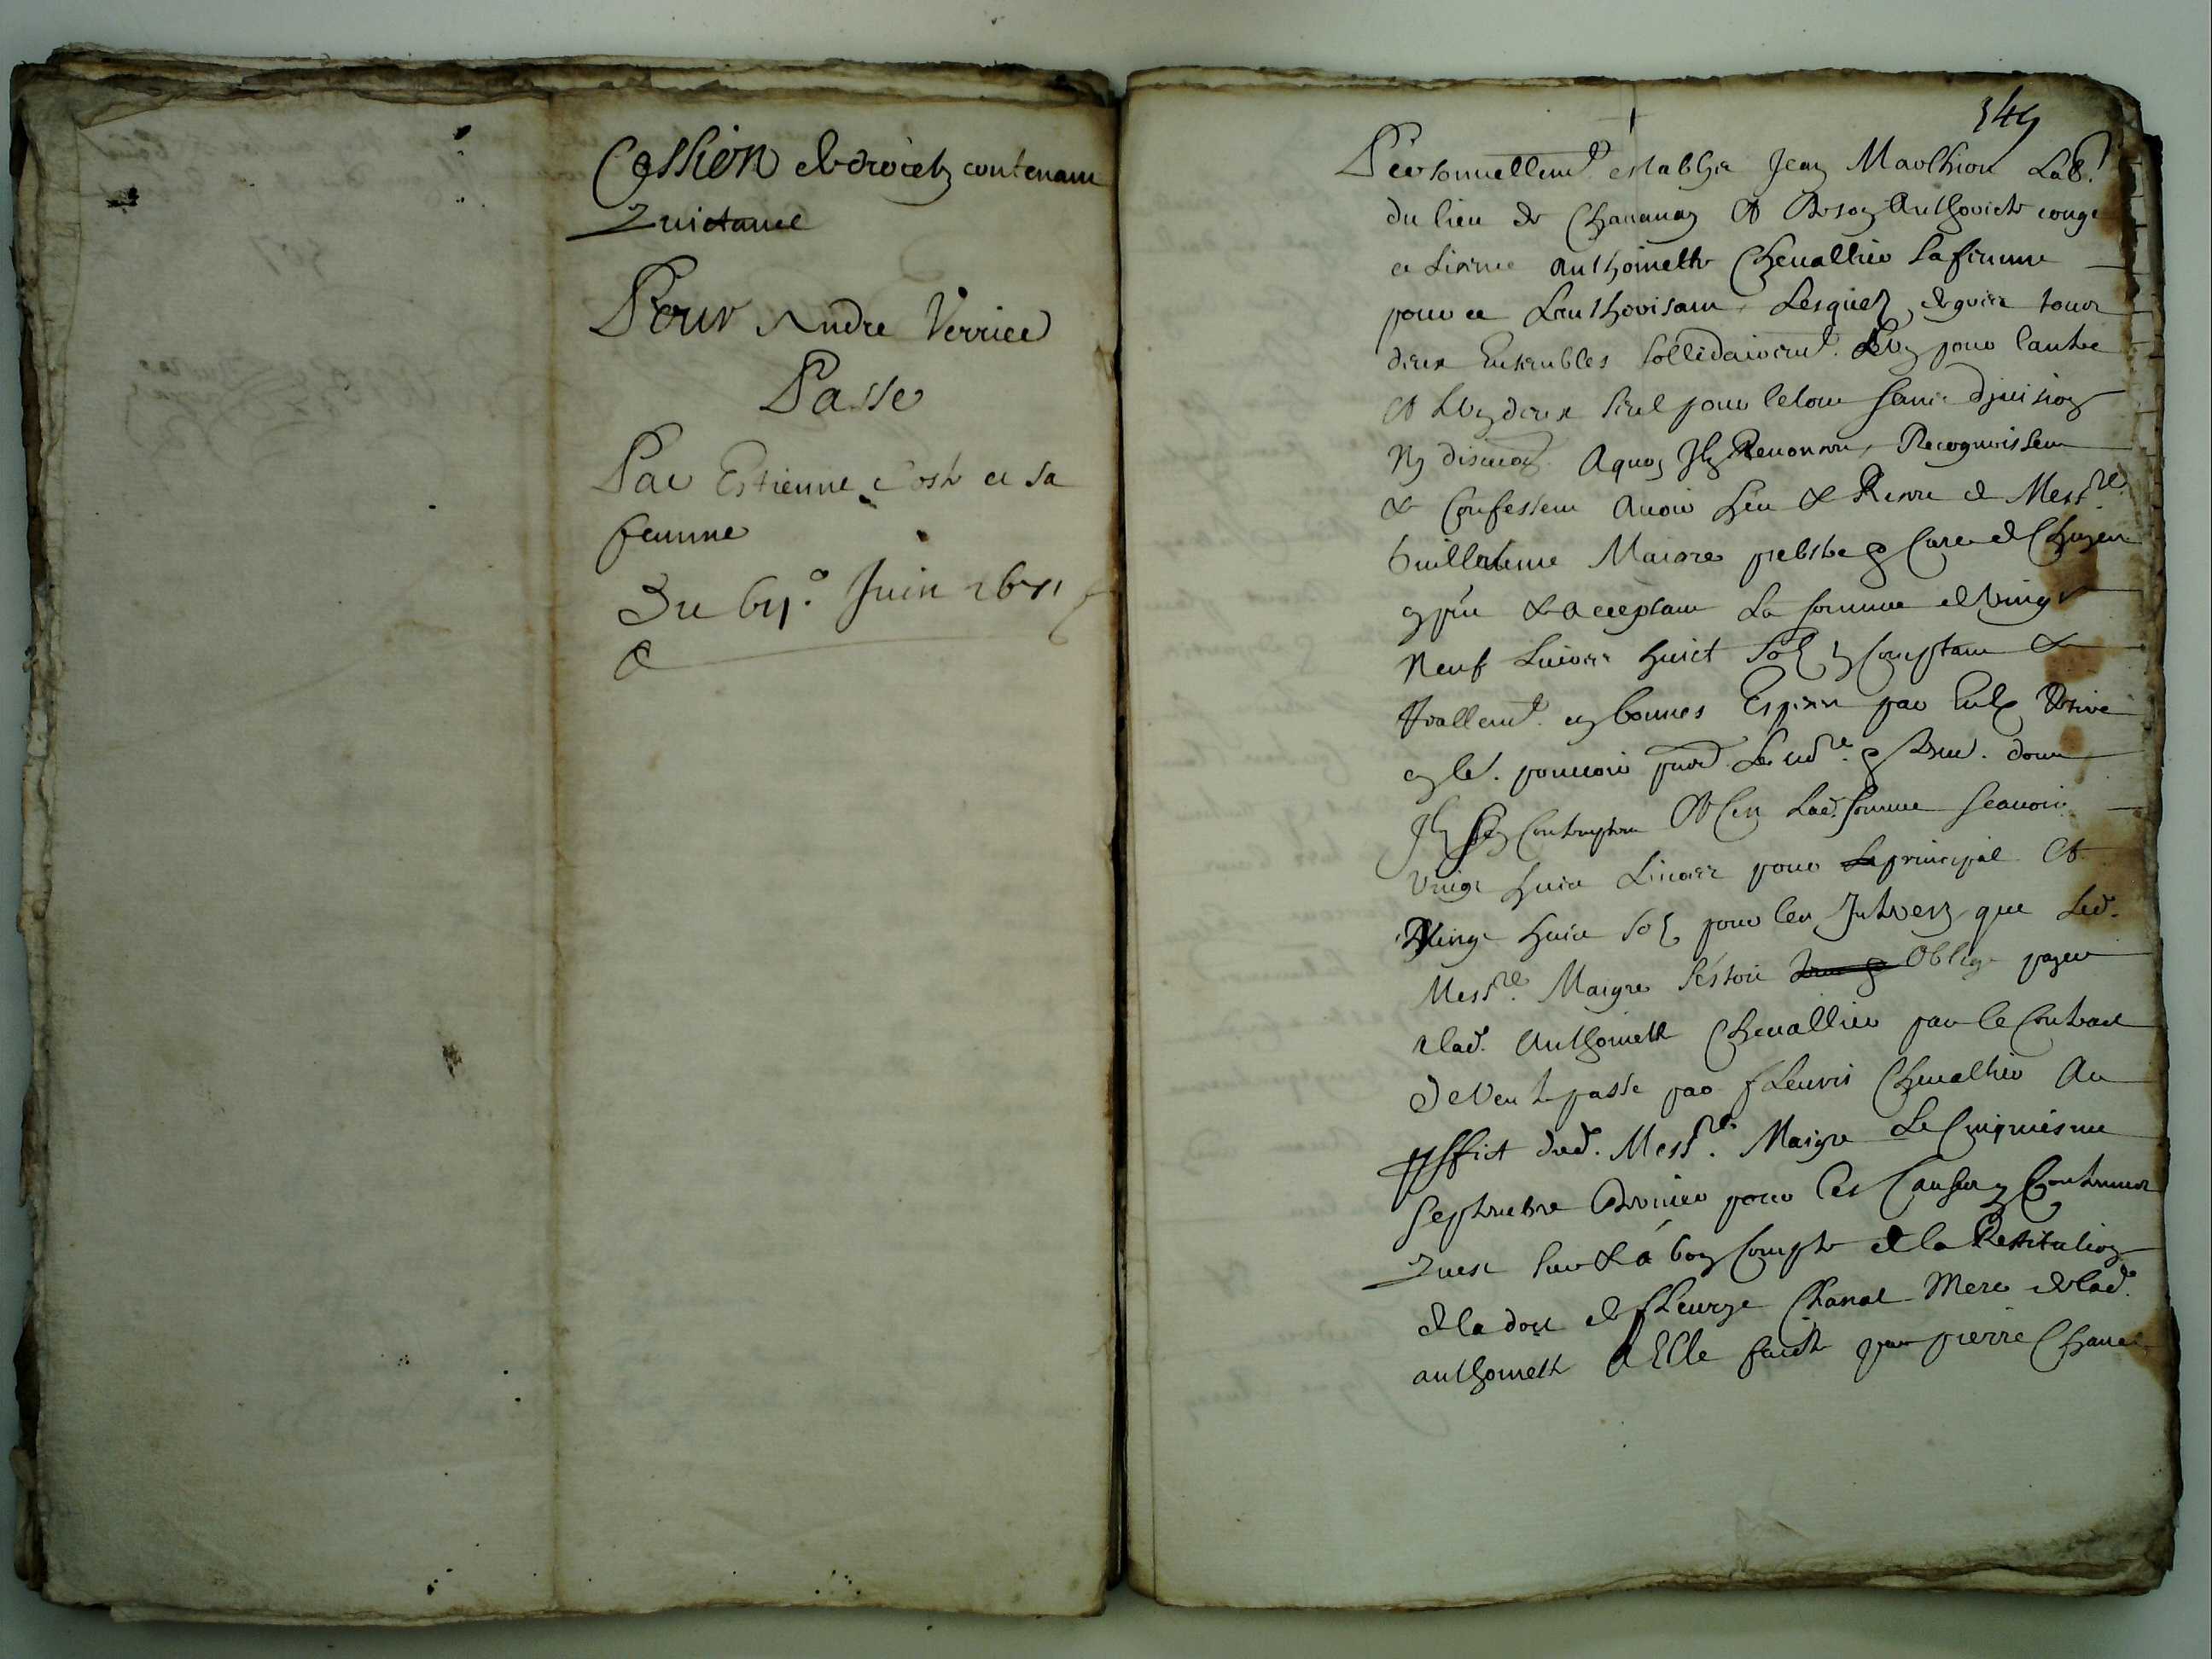 Cession de droictz contenant
Quictance
Pour Andre Verrier
Passe
Par Estienne Coste et sa
femme
Du 6 Juin 1671
349
Personnellemt establis Jean Marthion Lab.
du lieu de Chauanay et de son authorite conge
et licence anthoinette Cheuallier sa femme
pour ce Lauthorisant Lesquelz de gré tous
deux Ensembles sollidairemt. L'un pour lautre
et L'un deux seul pour le tout sans diuision
ny discution Aquoy Ilz Renoncent, Recognoissent
& Confessent Auoir heu & Receu de Messre.
Guilleaume Maigre prebstre & Cure de Chuyen
& acceptant La somme de Vingt
Neuf Liures huict solz Comptant &
Reallemt. en bonnes Especes par Eulx
dont
Ilz se Contentent Et C'en Lad. somme scauoir
Vingt huict Liures pour Le principal Et
Vingt huict solz pour les Interestz que Led.
Messre. Maigre s'estoit Oblige payer
a lad. Anthoinette Cheuallier par le Contract
de Vente passe par fleuris Cheuallier Au
proffict dud. Messre. Maigre Le Cinquiesme
Septembre dernier pour les Causes y Contenues
Quest sur & a bon Compte de la Restitution
de la dotte de fleurye Chanal Mere de lad.
anthoinette A Elle faicte par pierre Chanal